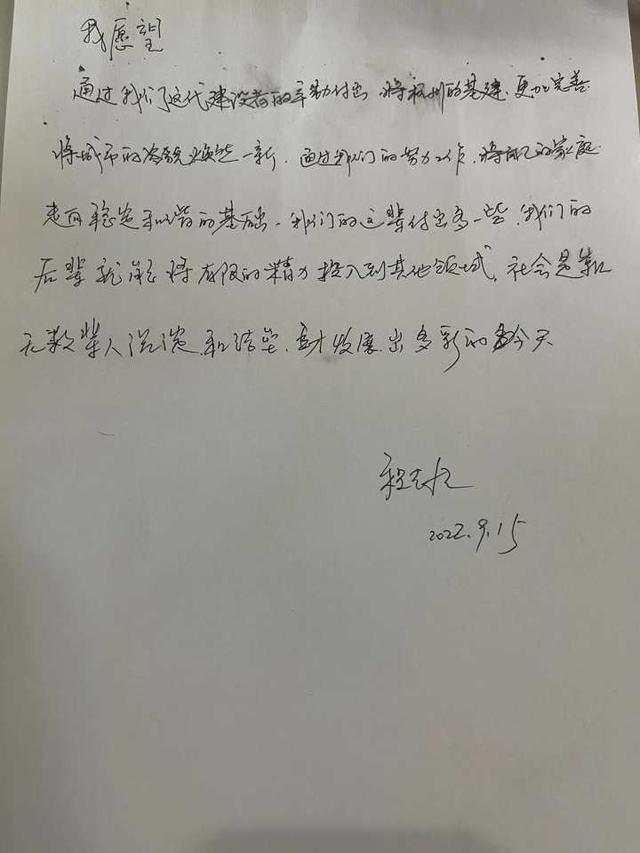 我愿望
通过我们这代建设者的辛勤付出 将杭州的基建,更加完善
将城市的容貌焕然一新,通过我们的努力工作,将自己的家庭
稳定和谐的基础,我们的这辈付出多一些,我们的
后辈就能将有限的精力投入到其他领域,社会是靠
无数辈人沉淀和 ,才发展出多彩的今天
程志
2022.9.15